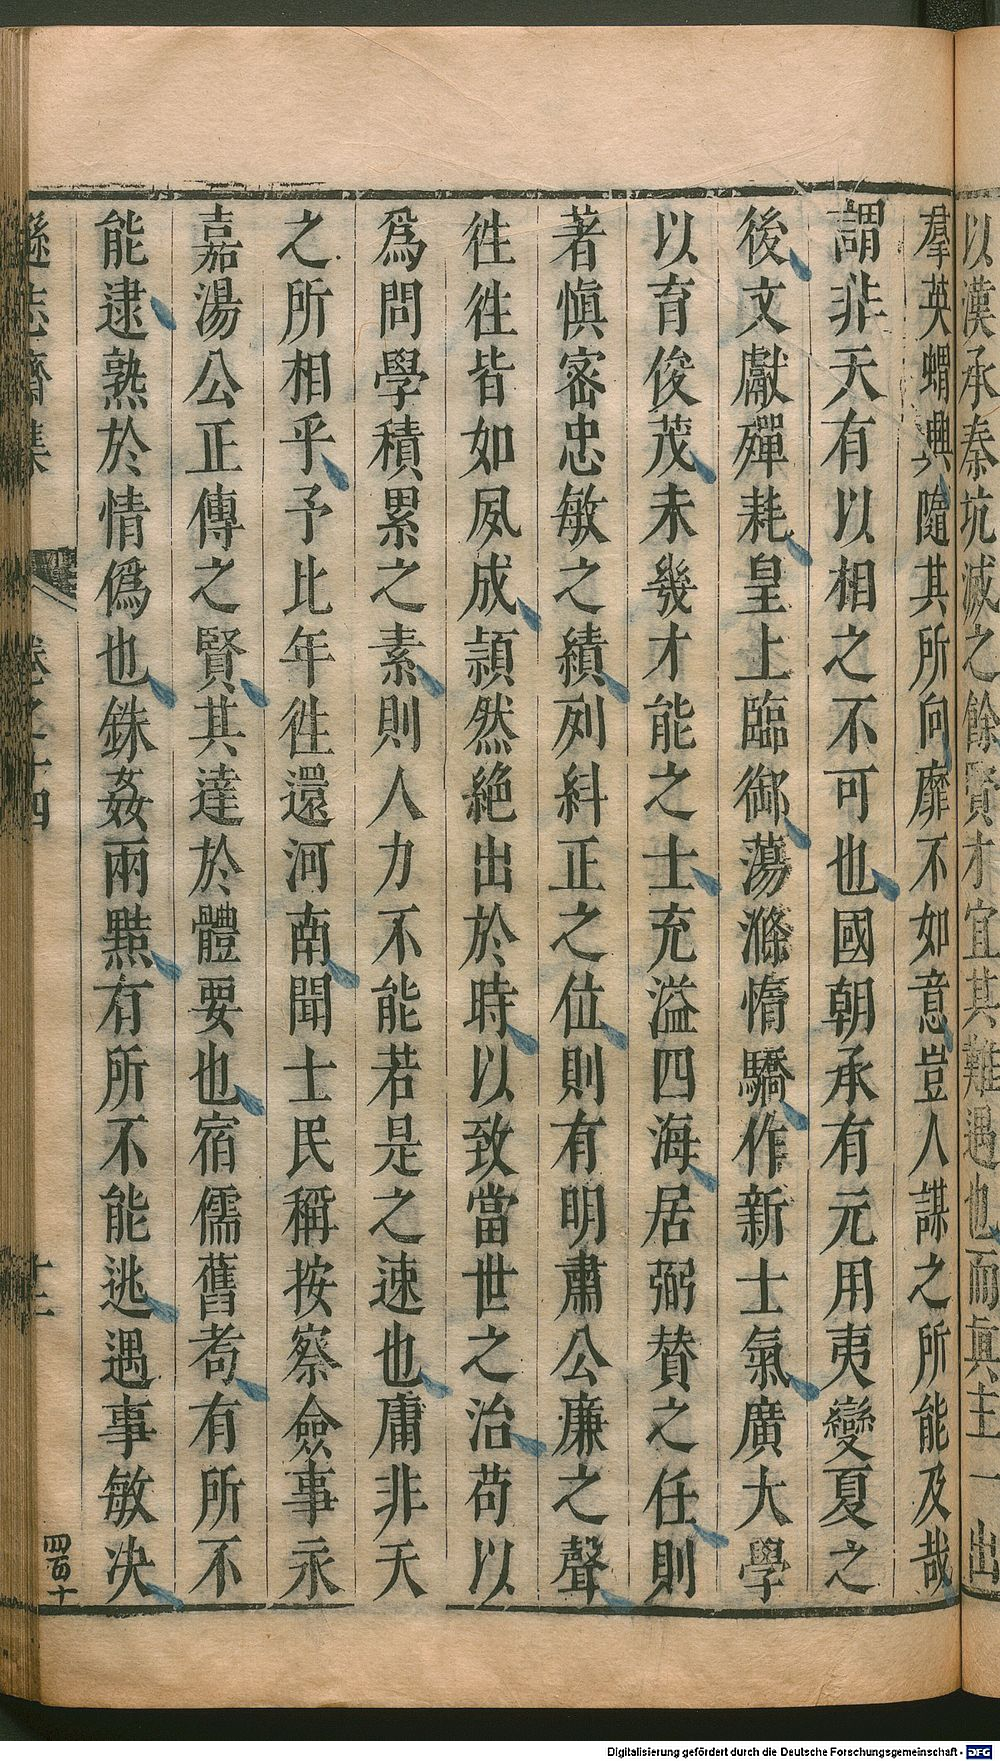 以漢承秦坑滅之餘賢才宜其難遇也而眞主一出
羣英蝟興隨其所向靡不如意豈人謀之所能及哉
謂非天有以相之不可也國朝承有元用夷變夏之
後文獻殫耗皇上臨御蕩滌惰驕作新士氣廣大學
以育俊茂未幾才能之士充溢四海居弼賛之任則
著愼密忠敏之績列糾正之位則有明肅公廉之聲
徃徃皆如夙成頴然絶出於時以致當世之治苟以
爲問學積累之素則人力不能若是之速也庸非天
之所相乎予比年徃還河南聞士民稱按察僉事永
嘉湯公正傳之賢其達於體要也宿儒舊耇有所不
能逮熟於情僞也銖姦兩黠有所不能逃遇事敏决
遜志齋集
卷之十四
十三
四百十
Digitalisierung gefördert durch die Deutsche Forschungsgemeinschaft - DFG